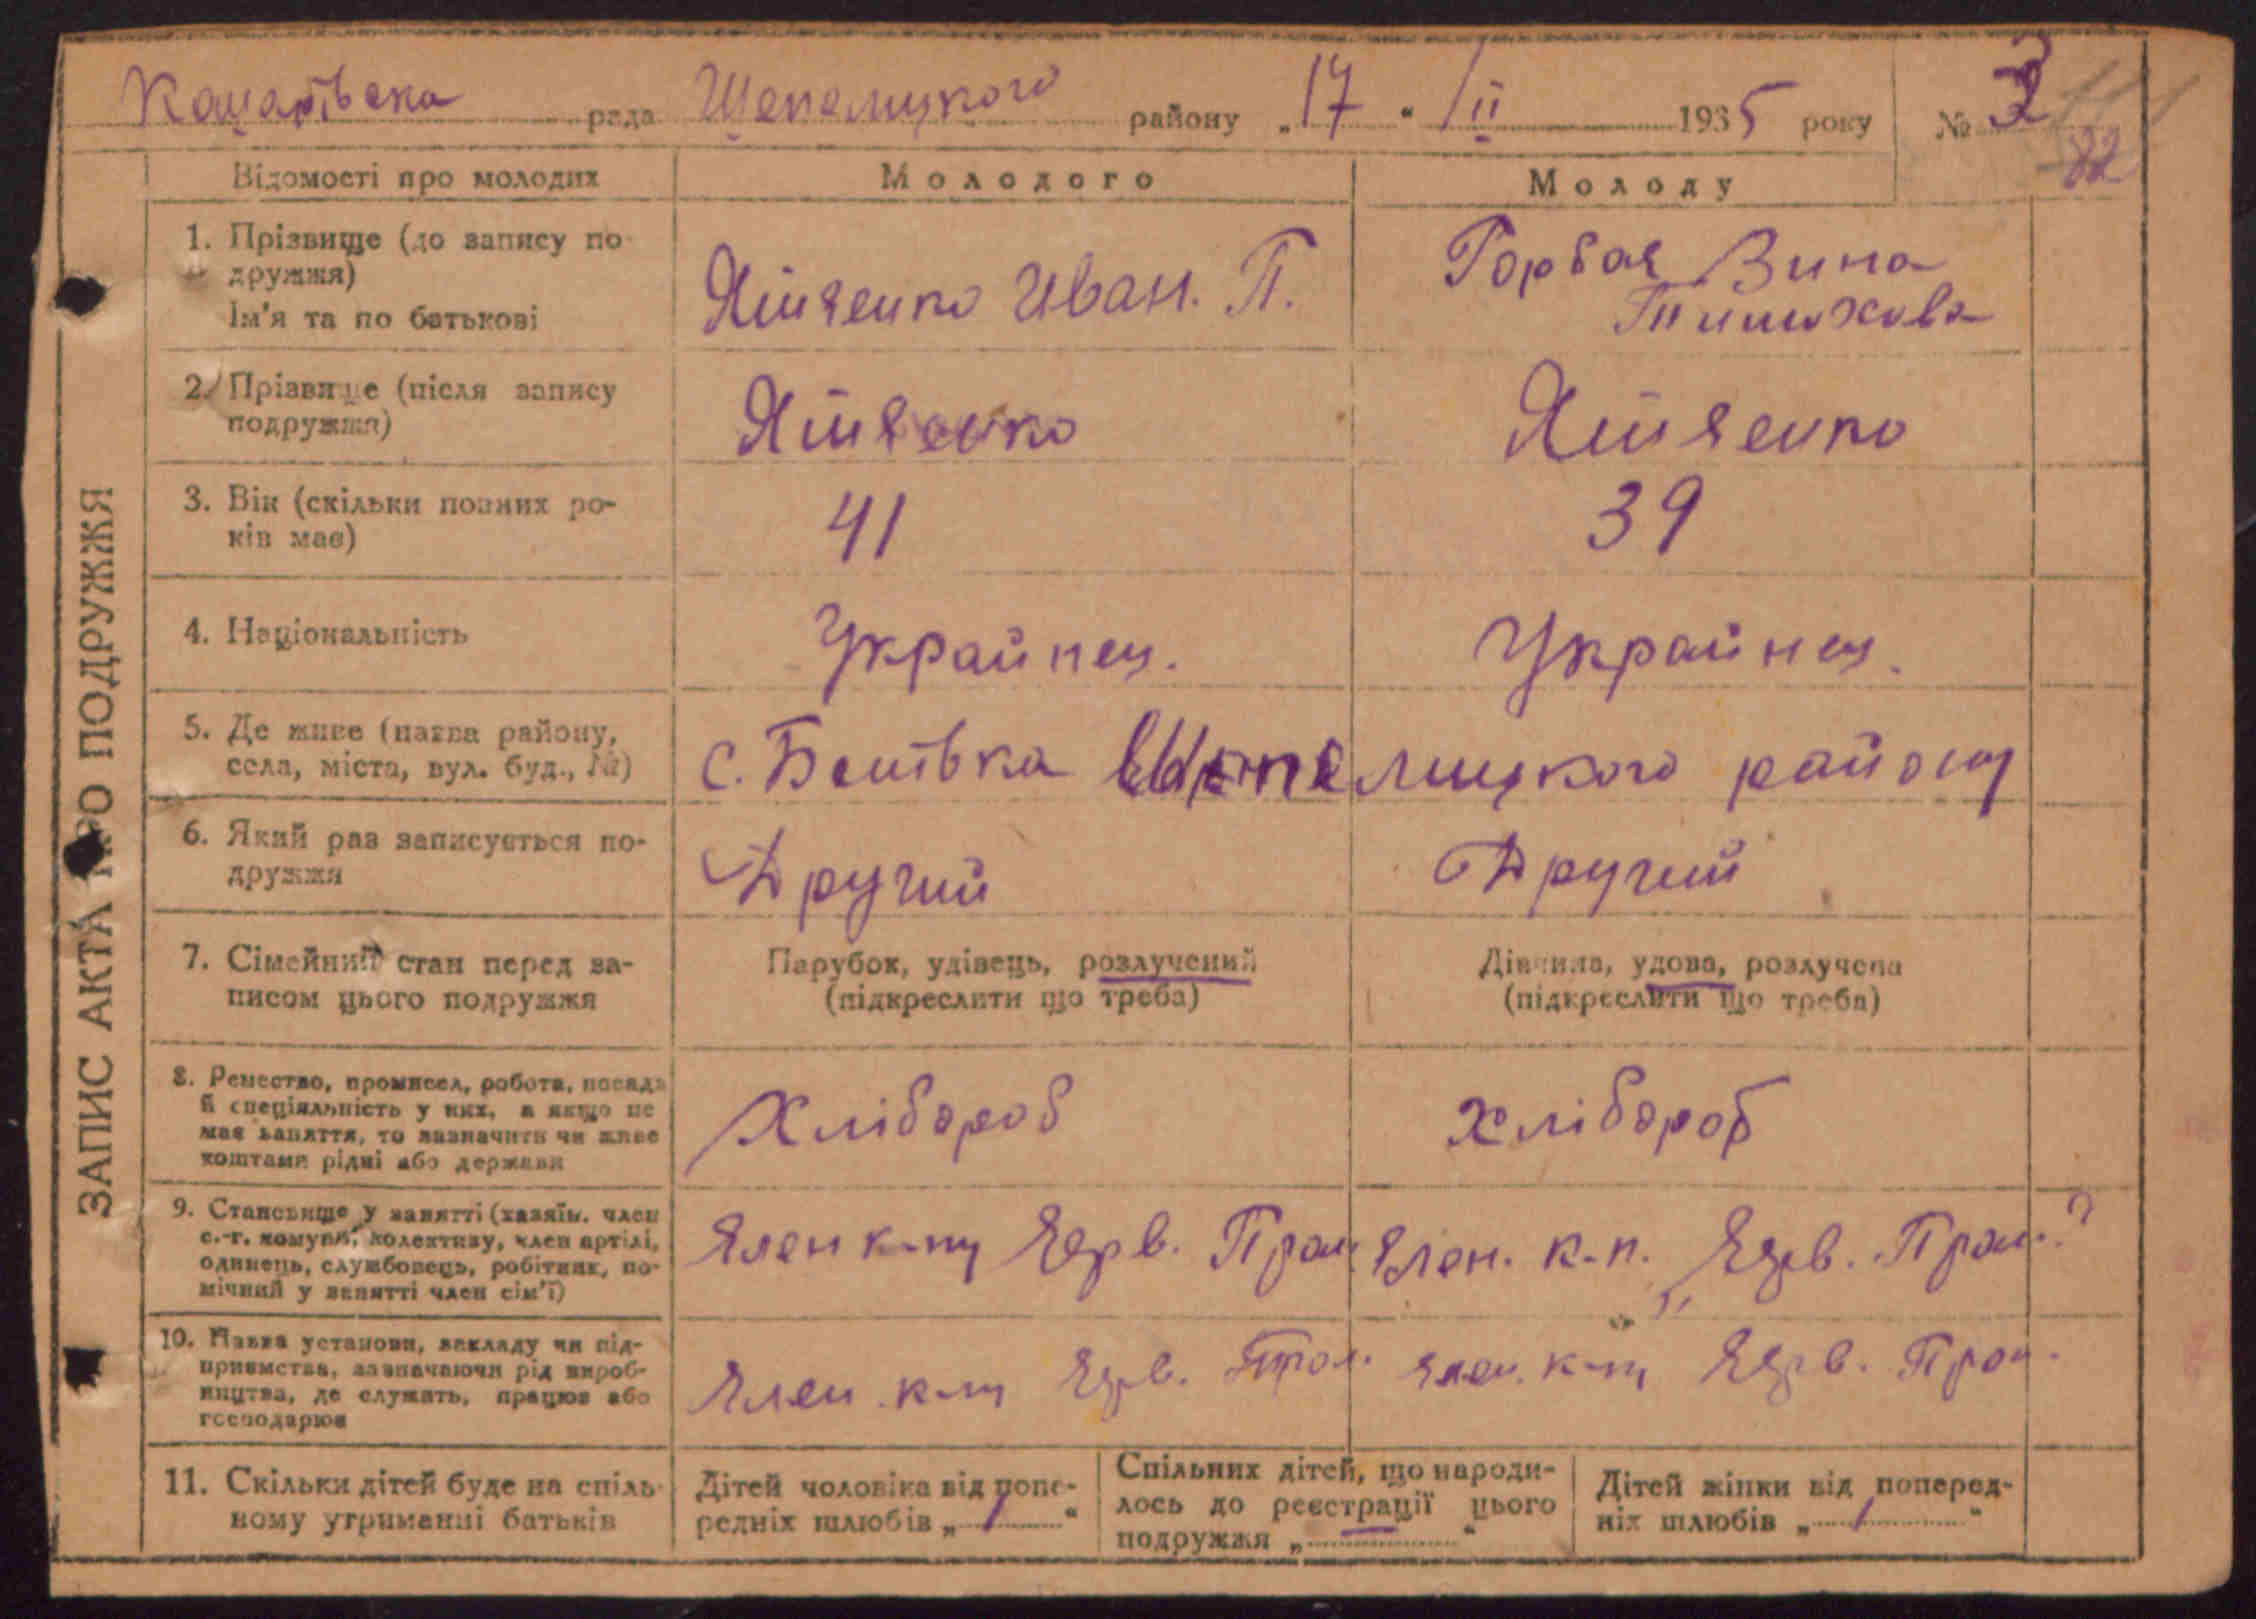 рада Шепелицкого району „17“ /II 1935 року № 3
82
Відомості про молодих
Молодого
Молоду
1. Прізвище (до запису по-
дружжя)
Ім'я та по батькові
Иван. П.
Горбач Зина
2. Прізвище (після запису
подружжя)
3. Вік (скільки повних ро-
ків має)
41
39
4. Національність
Украйнец.
Украйнец.
5. Де живе (назва району,
села, міста, вул. буд., №)
с. Шепелицкого району
6. Який раз записується по-
дружжя
Другий
Другий
7. Сімейний стан перед за-
писом цього подружжя
Парубок, удівець, розлучений
(підкреслити що треба)
Дівчина, удова, розлучена
(підкреслити що треба)
8. Ремество, промисел, робота, посада
й спеціяльність у них, а якщо не
має заняття, то зазначити чи живе
коштами рідні або держави
Хлібороб
Хлібороб
9. Становище у занятті (хазяїн. член
с.-г. комуни, колективу, член артілі,
одинець, службовець, робітник, по-
мічний у занятті член сім'ї)
Член к-пу Черв. Пром.
Член. к-п. Черв. Пром. ?
10. Назва установи, закладу чи під-
приємства, зазначаючи рід вироб-
ництва, де служать, працює або
господарює
Член к-пу Черв. Пром.
Член. к-пу Черв. Пром.
11. Скільки дітей буде на спіль-
ному утриманні батьків
Дітей чоловіка від попе-
редніх шлюбів „1“
Спільних дітей, що народи-
лось до реєстрації цього
подружжя „ “
Дітей жінки від поперед-
ніх шлюбів „1“
ЗАПИС АКТА ПРО ПОДРУЖЖЯ